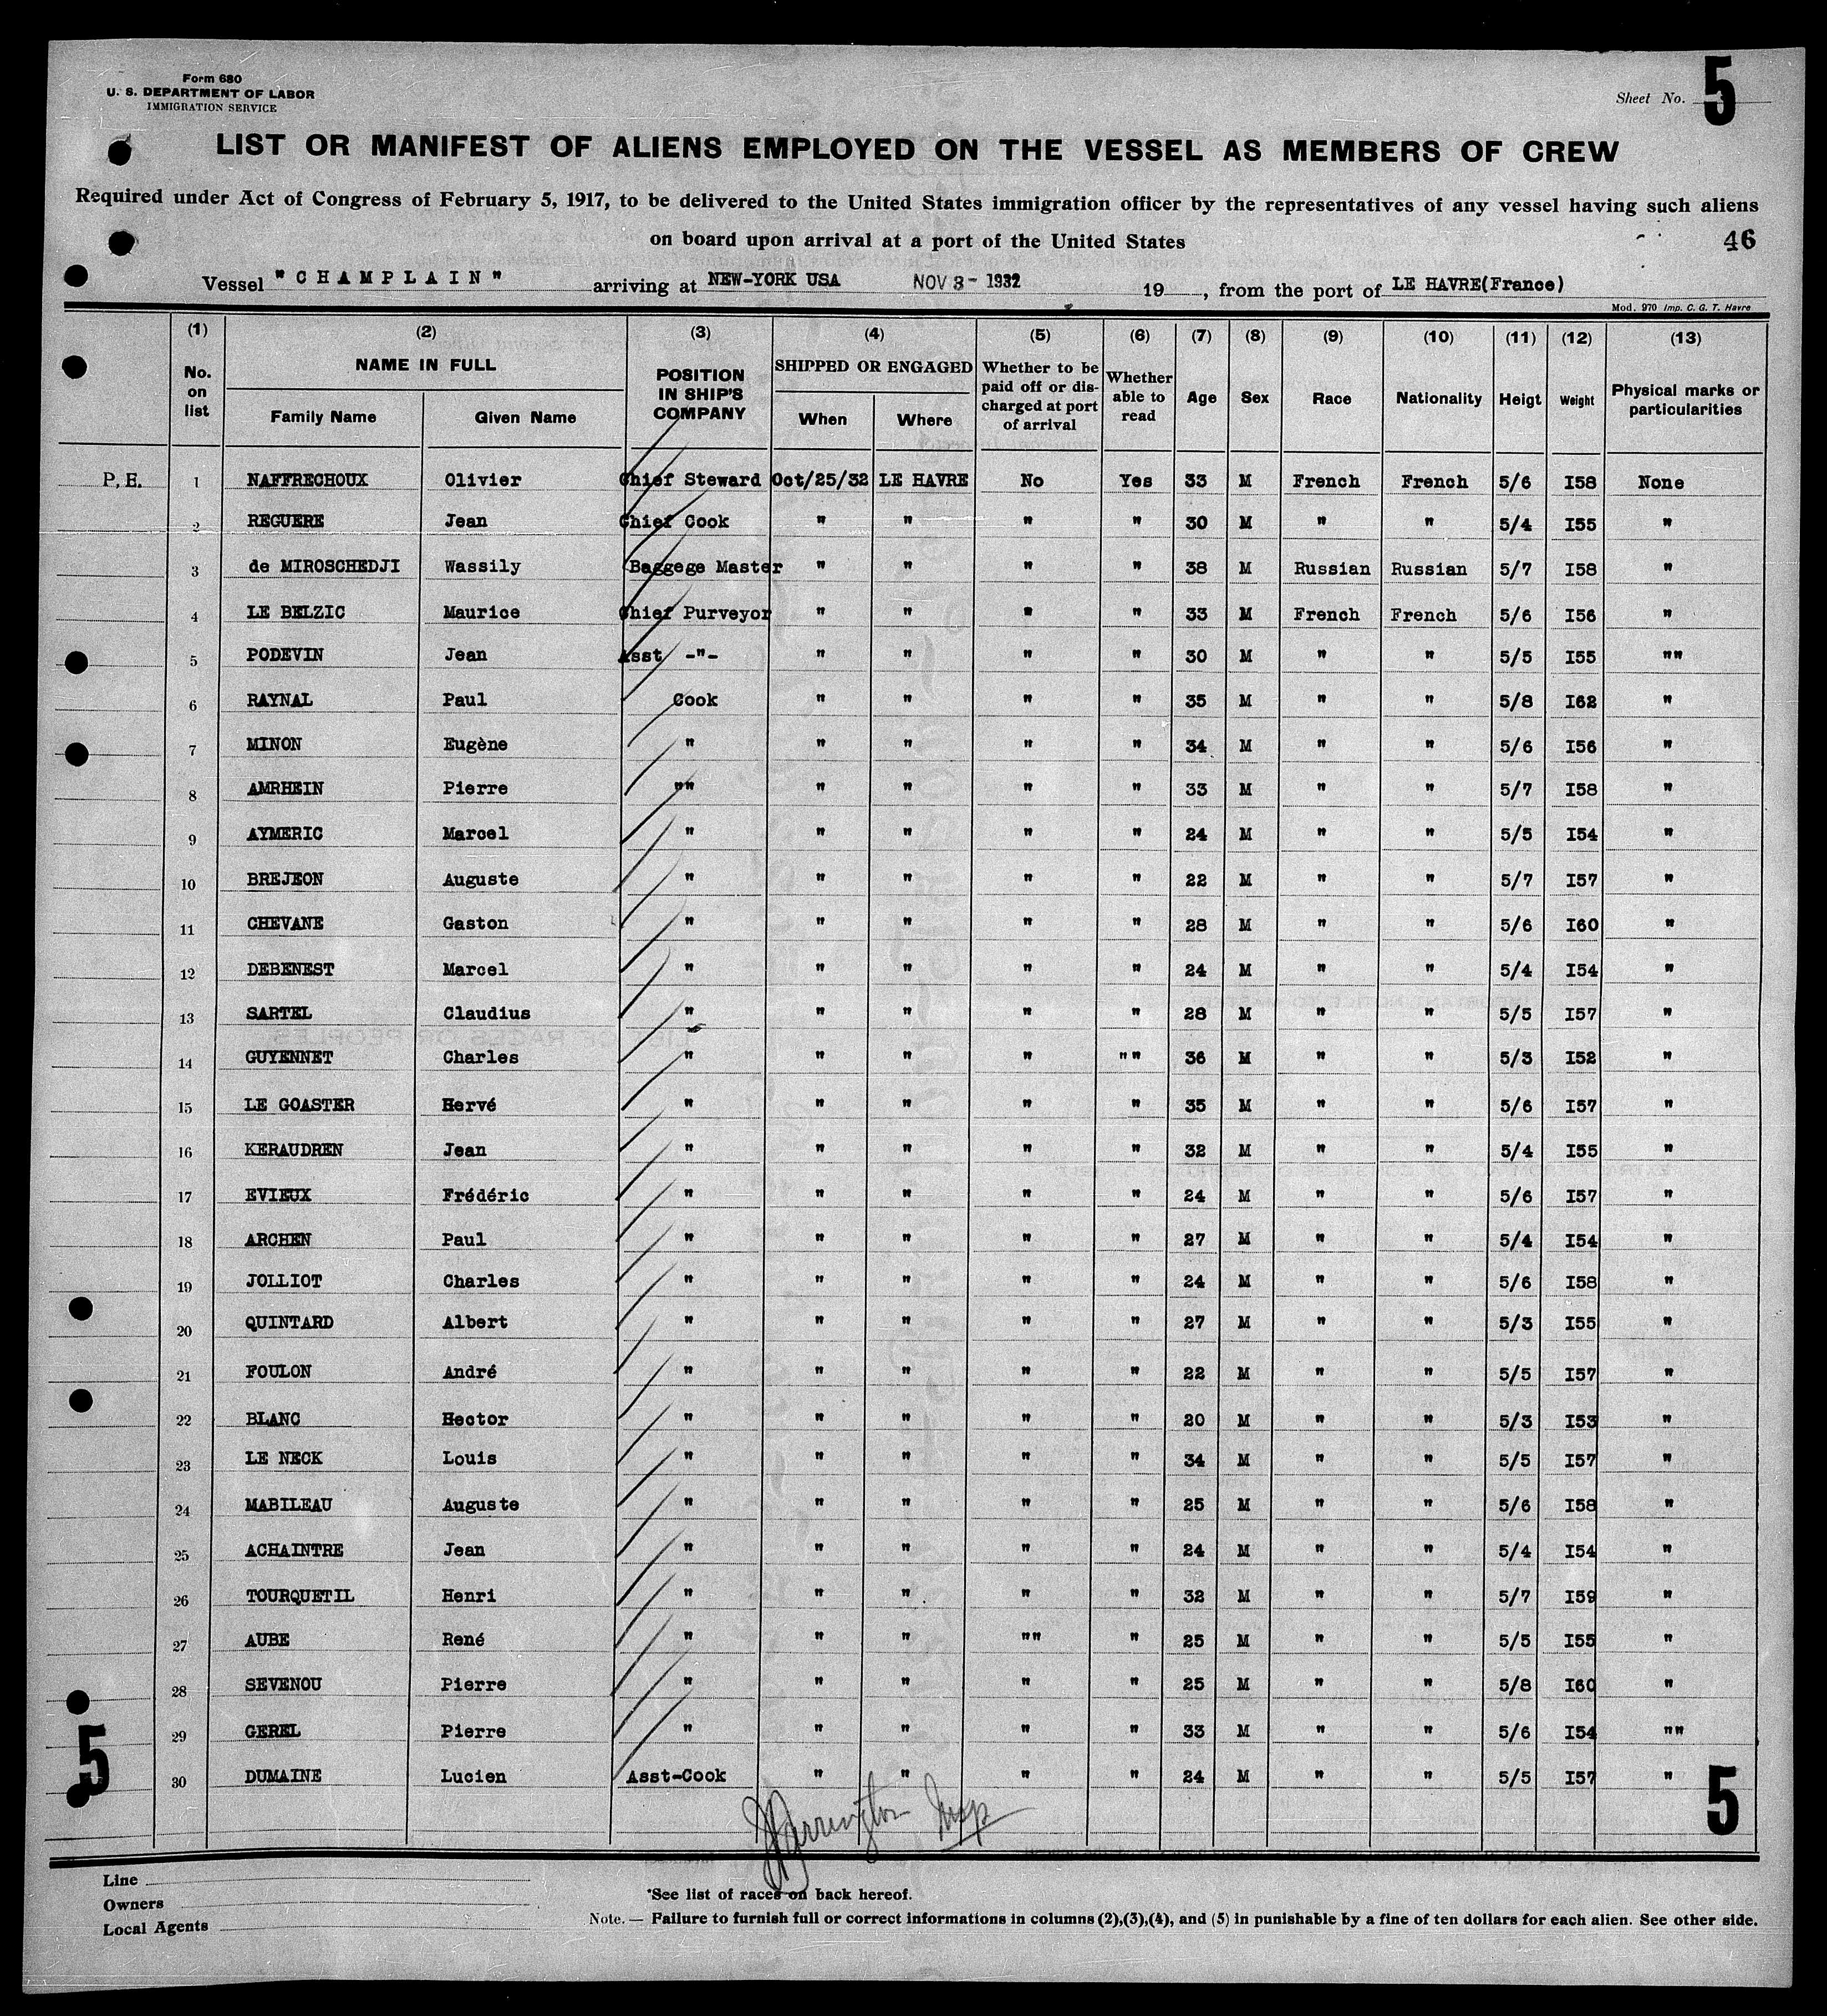 Form 680
U. S. DEPARTMENT OF LABOR
IMMIGRATION SERVICE
Sheet No. 5
LIST OR MANIFEST OF ALIENS EMPLOYED ON THE VESSEL AS MEMBERS OF CREW
Required under Act of Congress of February 5, 1917, to be delivered to the United States immigration officer by the representatives of any vessel having such aliens
on board upon arrival at a port of the United States
46
Vessel "CHAMPLAIN" arriving at NEW-YORK USA NOV 3 - 1932 19 , from the port of LE HAVRE(France)
Mod. 970 Imp. C. G. T. Havre
(1) (2) (3) (4) (5) (6) (7) (8) (9) (10) (11) (12) (13)
No. on list NAME IN FULL Family Name Given Name POSITION IN SHIP'S COMPANY SHIPPED OR ENGAGED When Where Whether to be paid off or discharged at port of arrival Whether able to read Age Sex Race Nationality Heigt Weight Physical marks or particularities
P.E. 1 NAFFRECHOUX Olivier Chief Steward Oct/25/32 LE HAVRE No Yes 33 M French French 5/6 I58 None
2 REGUERE Jean Chief Cook " " " " 30 M " " 5/4 I55 "
3 de MIROSCHEDJI Wassily Baggege Master " " " " 38 M Russian Russian 5/7 I58 "
4 LE BELZIC Maurice Chief Purveyor " " " " 33 M French French 5/6 I56 "
5 PODEVIN Jean Asst -"- " " " " 30 M " " 5/5 I55 ""
6 RAYNAL Paul Cook " " " " 35 M " " 5/8 I62 "
7 MINON Eugène " " " " " 34 M " " 5/6 I56 "
8 AMRHEIN Pierre "" " " " " 33 M " " 5/7 I58 "
9 AYMERIC Marcel " " " " " 24 M " " 5/5 I54 "
10 BREJEON Auguste " " " " " 22 M " " 5/7 I57 "
11 CHEVANE Gaston " " " " " 28 M " " 5/6 I60 "
12 DEBENEST Marcel " " " " " 24 M " " 5/4 I54 "
13 SARTEL Claudius " " " " " 28 M " " 5/5 I57 "
14 GUYENNET Charles " " " " "" 36 M " " 5/3 I52 "
15 LE GOASTER Hervé " " " " " 35 M " " 5/6 I57 "
16 KERAUDREN Jean " " " " " 32 M " " 5/4 I55 "
17 EVIEUX Frédéric " " " " " 24 M " " 5/6 I57 "
18 ARCHEN Paul " " " " " 27 M " " 5/4 I54 "
19 JOLLIOT Charles " " " " " 24 M " " 5/6 I58 "
20 QUINTARD Albert " " " " " 27 M " " 5/3 I55 "
21 FOULON André " " " " " 22 M " " 5/5 I57 "
22 BLANC Hector " " " " " 20 M " " 5/3 I53 "
23 LE NECK Louis " " " " " 34 M " " 5/5 I57 "
24 MABILEAU Auguste " " " " " 25 M " " 5/6 I58 "
25 ACHAINTRE Jean " " " " " 24 M " " 5/4 I54 "
26 TOURQUETIL Henri " " " " " 32 M " " 5/7 I59 "
27 AUBE René " " " "" " 25 M " " 5/5 I55 "
28 SEVENOU Pierre " " " " " 25 M " " 5/8 I60 "
29 GEREL Pierre " " " " " 33 M " " 5/6 I54 ""
30 DUMAINE Lucien Asst-Cook " " " " 24 M " " 5/5 I57 "
5 5
Insp
Line
Owners
Local Agents
*See list of races on back hereof.
Note. — Failure to furnish full or correct informations in columns (2),(3),(4), and (5) in punishable by a fine of ten dollars for each alien. See other side.